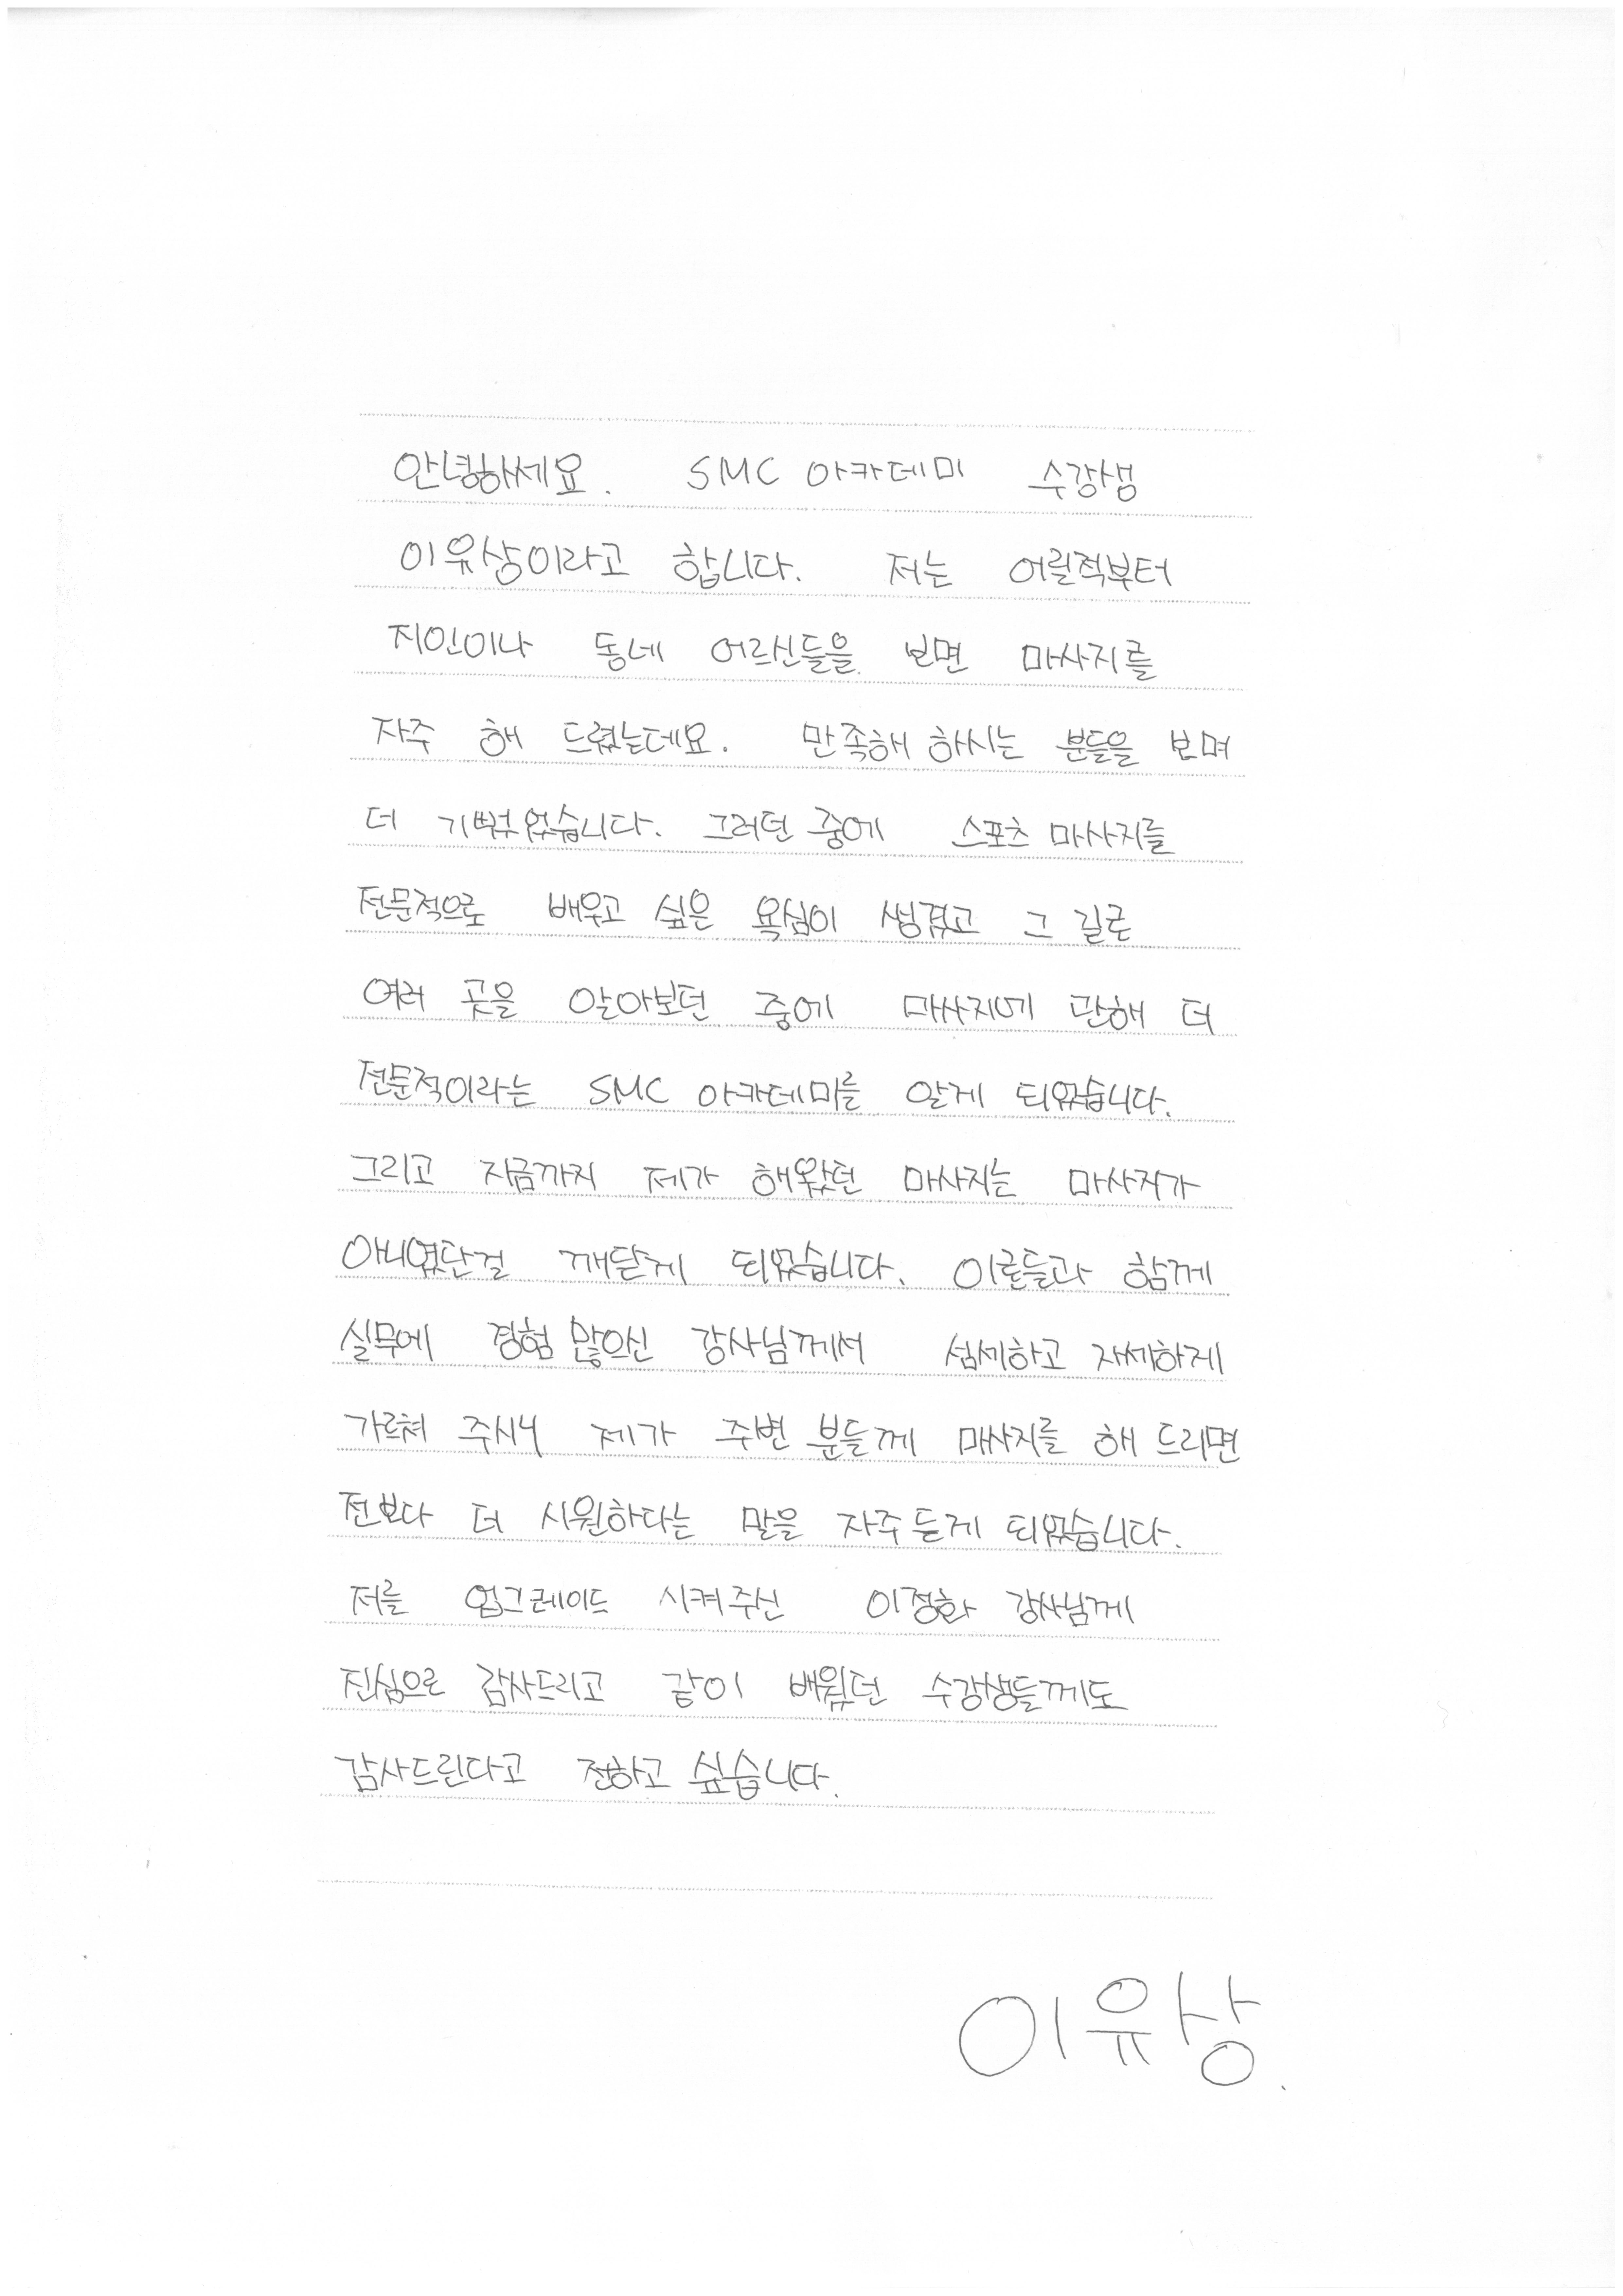 안녕하세요. SMC 아카데미 수강생
이유상이라고 합니다. 저는 어릴적부터
지인이나 동네 어르신들을 보면 마사지를
자주 해 드렸는데요. 만족해 하시는 분들을 보며
더 기뻤었습니다. 그러던 중에 스포츠 마사지를
전문적으로 배우고 싶은 욕심이 생겼고 그 길로
여러 곳을 알아보던 중에 마사지에 관해 더
전문적이라는 SMC 아카데미를 알게 되었습니다.
그리고 지금까지 제가 해왔던 마사지는 마사지가
아니였단걸 깨닫게 되었습니다. 이론들과 함께
실무에 경험 많으신 강사님께서 섬세하고 자세하게
가르쳐 주시니 제가 주변 분들께 마사지를 해 드리면
전보다 더 시원하다는 말을 자주 듣게 되었습니다.
저를 업그레이드 시켜주신 이정화 강사님께
진심으로 감사드리고 같이 배웠던 수강생들께도
감사드린다고 전하고 싶습니다.
이유상.